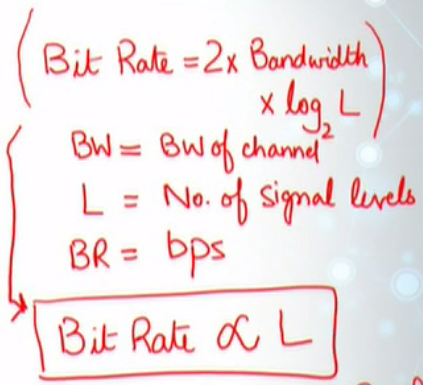 (Bit Rate = 2 x Bandwidth
x log₂ L)
BW = BW of channel
L = No. of signal levels
BR = bps
Bit Rate ∝ L